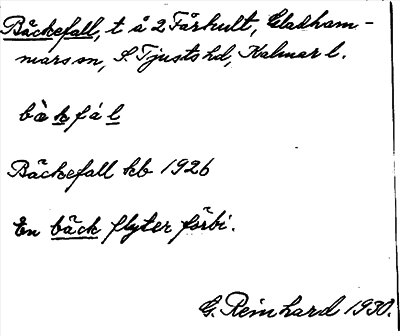 Bäckefall, t å 2 Fårhult, Gladham-
mars sn, S. Tjusts hd, Kalmar l.
bàkfál
Bäckefall kb 1926
En bäck flyter förbi.
G. Reinhard 1930.